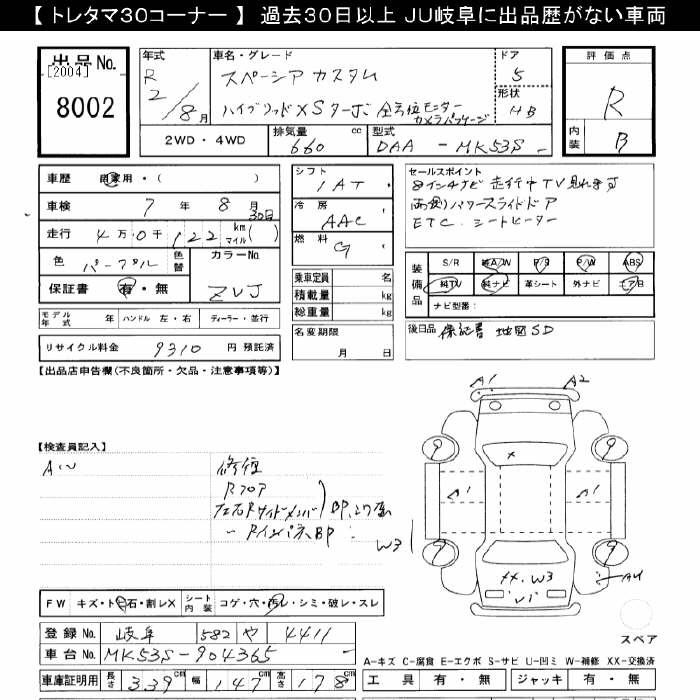 【 トレタマ30コーナー 】 過去30日以上 JU岐阜に出品歴がない車両
出品No.
[2004]
8002
年式
R
2/8月
車名・グレード
スペーシア カスタム
ハイブリッドXSターボ 全方位モニター
カメラパッケージ
ドア
5
形状
HB
評価点
R
内装
B
2WD ・ 4WD
排気量
660 cc
型式
DAA - MK53S
車歴 自家用・( )
車検 7 年 8 月
30日
走行 4万0千122 km(マイル)
色 パープル 色替
カラーNo
ZVJ
保証書 有・無
シフト
IAT
冷房
AAC
燃料
G
乗車定員 名
積載量 kg
総重量 kg
名変期限
月 日
セールスポイント
8インチナビ 走行中TV見れます
両側パワースライドドア
ETC シートヒーター
装備品
S/R 純A/W P/S P/W ABS
純TV 純ナビ 革シート 外ナビ エアB
ナビ型番:
モデル年式 年 ハンドル 左・右 ディーラー・並行
後日品 保証書 地図SD
リサイクル料金 9310 円 預託済
【出品店申告欄(不良箇所・欠品・注意事項等)】
A1 A2
【検査員記入】
AW
修復
Rフロア
左右Rサイドメンバー BP
Rインパネ BP
W3
9 9
A1 A1
9 9
XX.W3
A4
FW キズ・ト石・割レX シート内装 コゲ・穴・汚レ・シミ・破レ・スレ
スペア
登録No. 岐阜 582 や 4411
車台No. MK53S-904365
A-キズ C-腐食 E-エクボ S-サビ U-凹ミ W-補修 XX-交換済
車庫証明用 長さ 3.39cm 幅 147cm 高さ 178cm
工具 有・無 ジャッキ 有・無